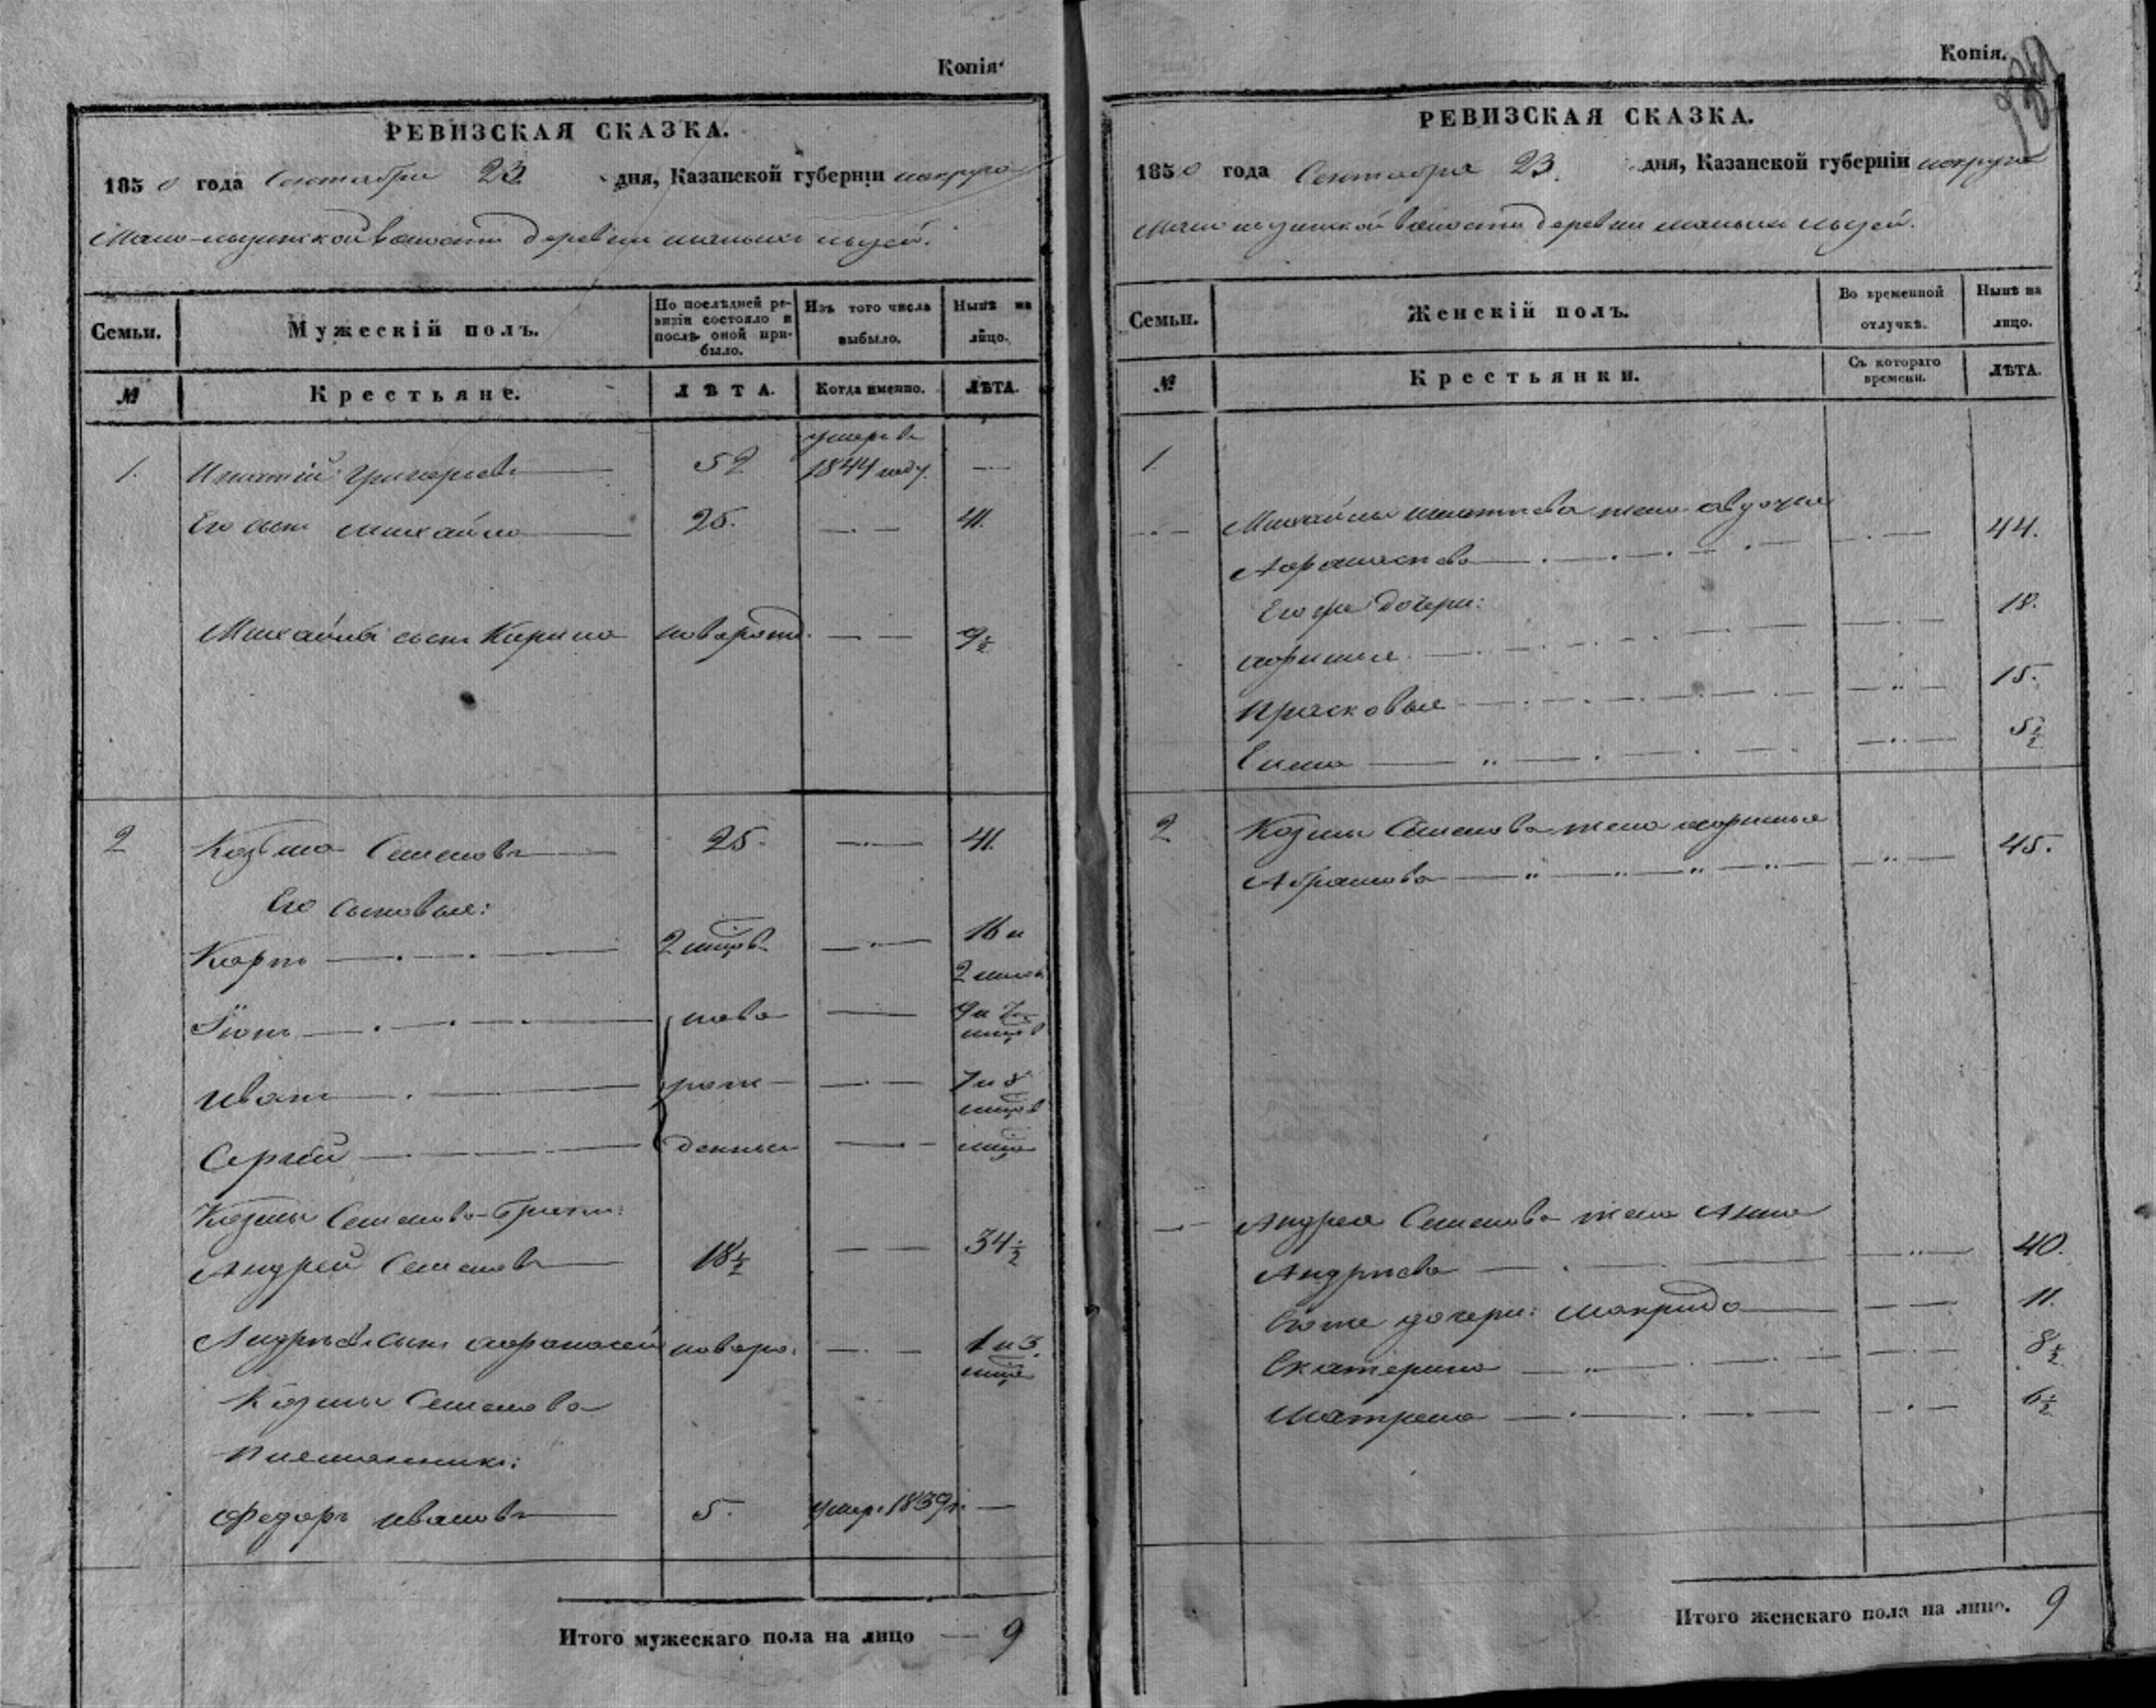 Копія.
РЕВИЗСКАЯ СКАЗКА.
1850 года Сентября 23 дня, Казанской губерніи
волости деревни
Семьи.
Мужескій полъ.
По послѣдней ревизіи состояло и послѣ оной прибыло.
Изъ того числа выбыло.
Нынѣ на лицо.
№
Крестьяне.
ЛѢТА.
Когда именно.
ЛѢТА.
умеръ въ
1. Игнатій Григорьевъ 52 1844 году. —
Его сынъ Михайло 25. — 41.
Михайлы сынъ Кирило новорожд. — 9½
2 Козьма Семеновъ 25. — 41.
Его сыновья:
Карпъ 2 мцов — 16 и 2 мцов
Іонъ ново — 9 и 7 мцов
Иванъ рож — 7 и 8 мцов
Сергѣй денные — мца
Козмы Семенова братъ:
Андрей Семеновъ 18½ — 34½
Андрѣя сынъ Афанасей новоро. — 1 и 3. мца
Козмы Семенова
Племянникъ:
Федоръ Ивановъ 5. умер. 1839 г. —
Итого мужескаго пола на лицо — 9
Копія.
РЕВИЗСКАЯ СКАЗКА.
1850 года Сентября 23. дня, Казанской губерніи
волости деревни
Семьи.
Женскій полъ.
Во временной отлучкѣ.
Нынѣ на лицо.
№
Крестьянки.
Съ котораго времени.
ЛѢТА.
1.
Михайлы Игнатьева жена Авдотья
Афанасьева — 44.
Его же дочери: 18.
Афимья
Прасковья 15.
Елена 5½
2 Козмы Семенова жена Афимья
Абрамова 45.
Андрея Семенова жена Анна
Андрѣева 40.
Его же дочери: Макрида 11.
Екатерина 8½
Матрена 6½
Итого женскаго пола на лицо. 9